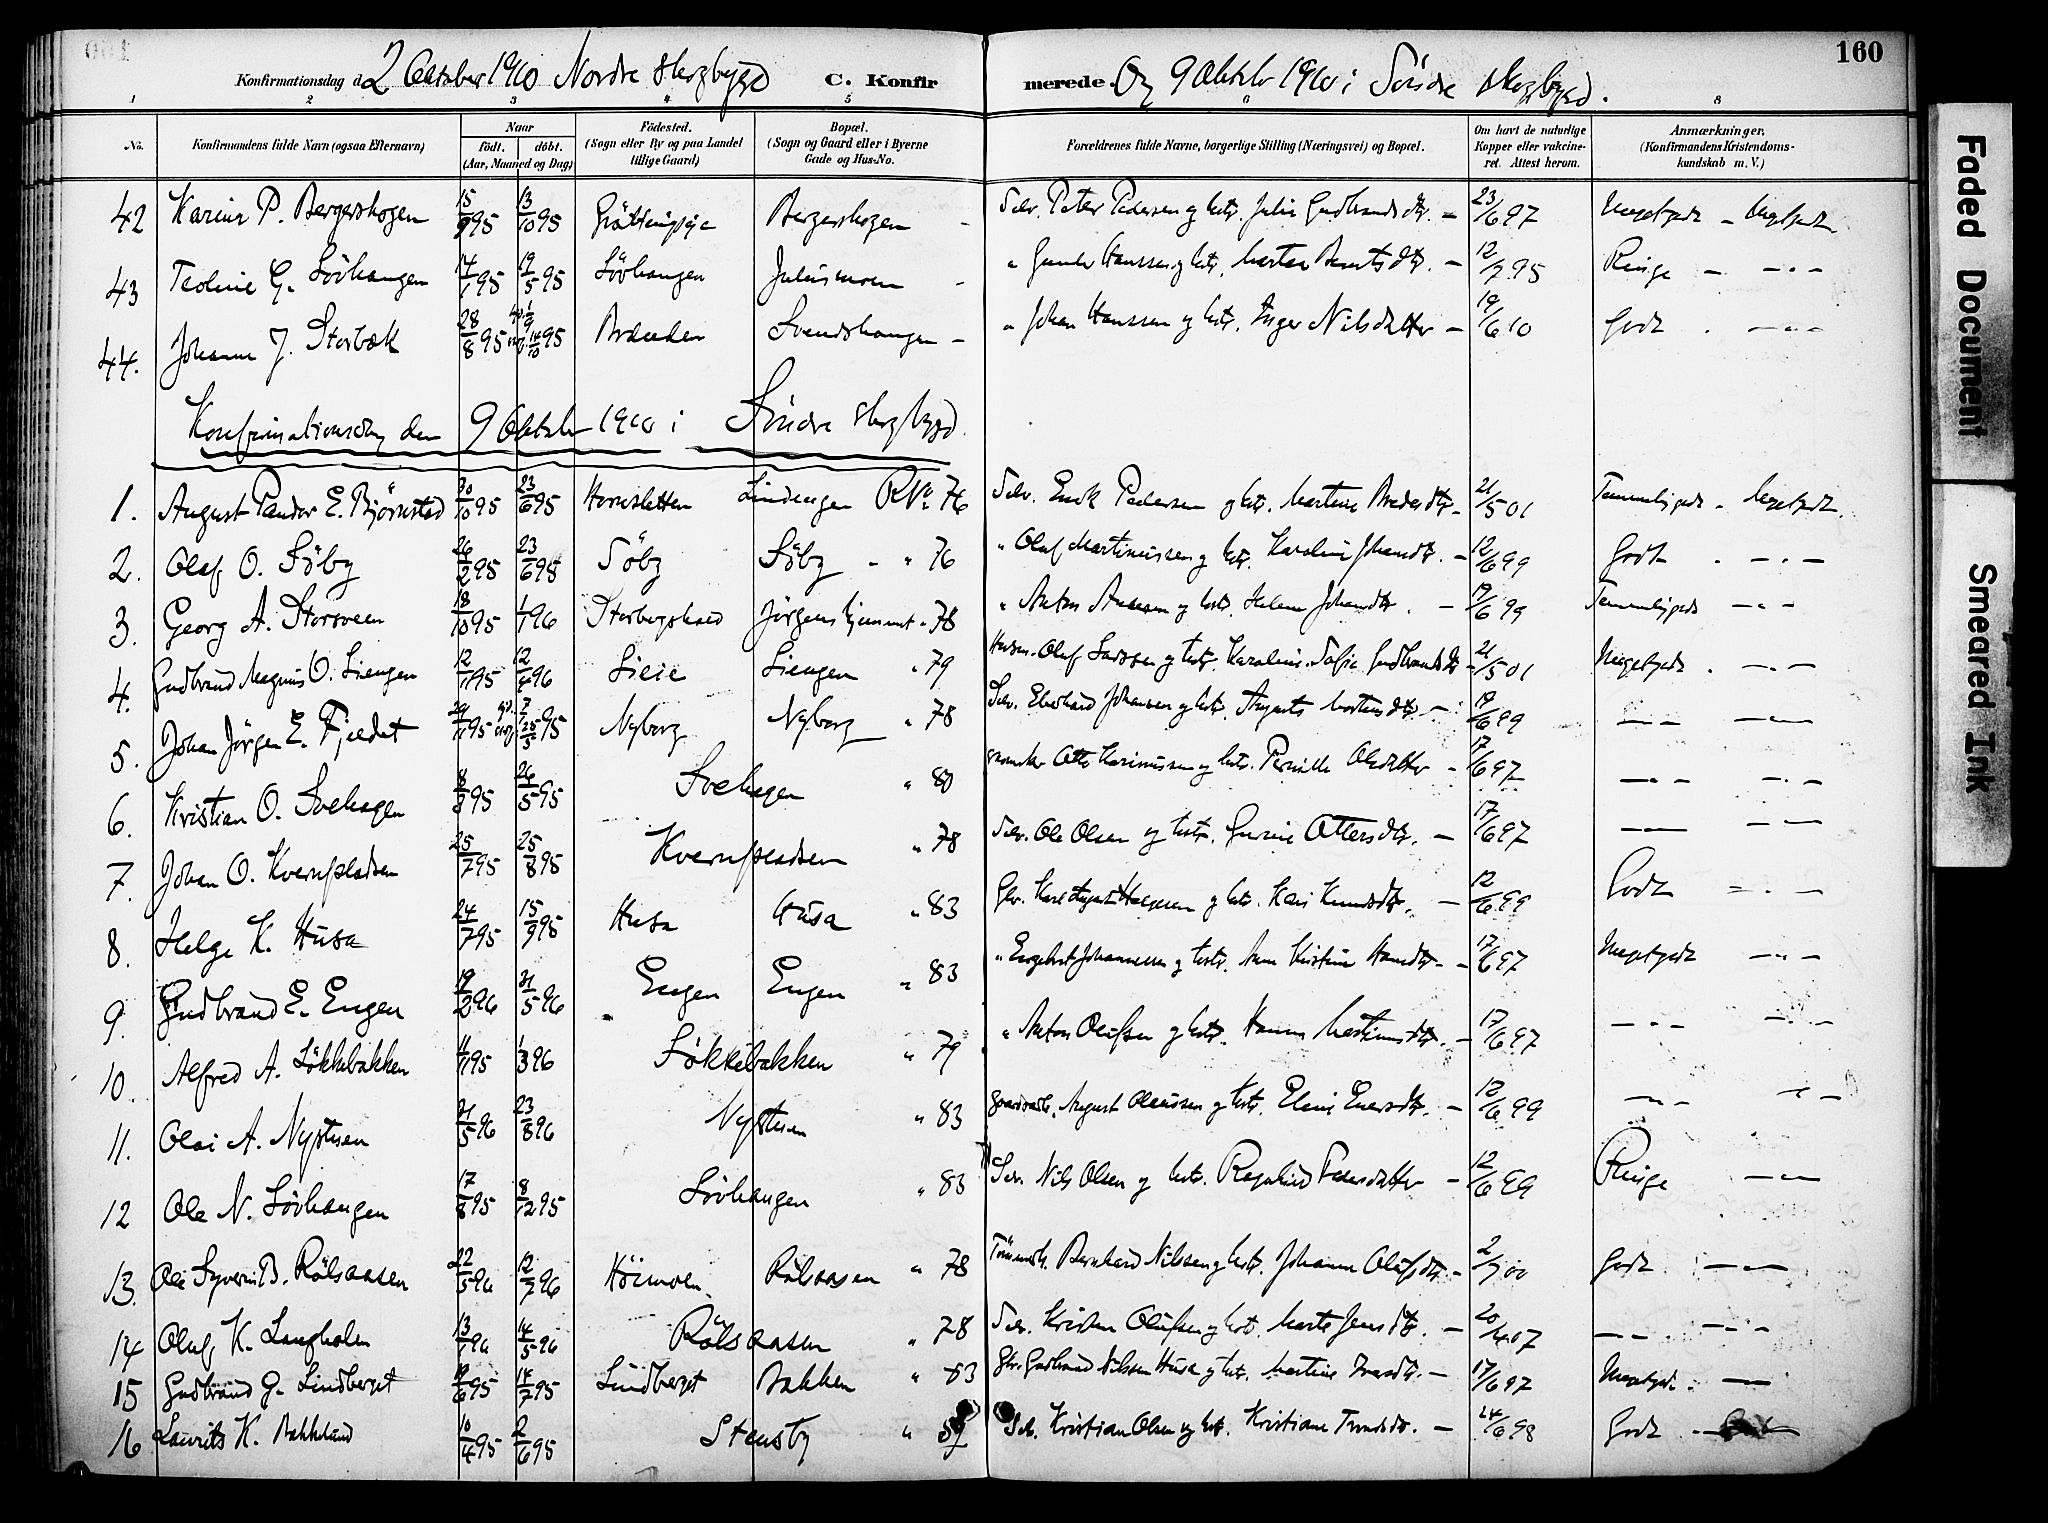 160
Konfirmationsdag d. 2 Oktober 1910 Nordre Skogbygd C. Konfirmerede. Og 9 Oktob 1910 i Söndre Skogbygd.
1 2 3 4 5 6 8
No. Konfirmandens fulde Navn (ogsaa Efternavn) Naar Födt. döbt. (Aar, Maaned og Dag) Födested. (Sogn eller By og paa Landet tillige Gaard) Bopæl. (Sogn og Gaard eller i Byerne Gade og Hus-No. Forældrenes fulde Navne, borgerlige Stilling (Næringsvei) og Bopæl. Om havt de naturlige Kopper eller vakcineret. Attest herom. Anmærkninger. (Konfirmandens Kristendomskundskab m. V.)
42 Karine P. Bergerskogen 15/9 95 13/10 95 Bergerskogen Selv. Peter Pedersen og hstr. Julie Gudbrandsdtr. 23/6 97 Megetgodt - Megetgodt
43 Teoline G. Lövhaugen 14/1 95 19/5 95 Lövhaugen Juliusmoen " Hanssen og hstr. Martea 12/7 95 Ringe - " -
44. Johanne J. Storbæk 28/8 95 95 Brænden Svendshaugen " Johan Hanssen og hstr. Inger Nilsdatter 19/6 10 Godt - " -
Konfirmationsdag den 9 Oktober 1910 i Söndre Skogbygd
1. August E. Björnstad 95 23/6 95 Hornsletten Lindengen R No 76 Selv. Pedersen og hstr. Martine 21/5 01 Temmeliggodt - Megetgodt
2. Olaf O. Söby 26/2 95 23/6 95 Söby Söby - " 76 " Olaf Martinussen og hstr. Karoline Johansdtr. 12/6 99 Godt - " -
3. Georg A. Storsveen 18/10 95 1/1 96 Storbergshaed Jörgenshjemmet " 78 " Anton og hstr. Helene Johansdtr. 17/6 99 Temmeliggodt - " -
4. Gudbrand Magnus O. Liengen 12/11 95 12/4 96 Lieie Liengen " 79 Olaf Larssen og hstr. Karoline Sofie Gudbrandsdtr 21/5 01 Megetgodt. - " -
5. Johan Jörgen E. Fjeldet 95 95 Nyborg Nyborg " 78 Selv. Eberhard Johansen og hstr. Augusta 17/6 99 - " - - " -
6. Kristian O. Svehagen 95 26/5 95 Svehagen " 80 Otto Karinussen og hstr. Pernille Olsdatter 17/6 97 - " - - " -
7. Johan O. Kvernpladsen 25/7 95 25/8 95 Kvernpladsen " 78 Selv. Ole Olsen og hstr. Gurine Ottersdtr. 17/6 97 - " - - " -
8. Helge K. Husa 24/7 95 15/9 95 Husa Husa " 83 Karl August og hstr. Kari Knudsdtr. 12/6 99 Godt - " -
9. Gudbrand E. Engen 19/2 96 31/5 96 Engen Engen " 83 " Engebret Johannessen og hstr. Anne Kristine Hansdtr. 17/6 97 Megetgodt - " -
10. Alfred A. Løkkebakken 95 1/3 96 Løkkebakken " 79 " Anton Olufsen og hstr. Hanna Martinusdtr. 17/6 97 - " - - " -
11. Olai A. Nystuen 31/5 96 23/8 96 Nystuen " 83 August Olaussen og hstr. Eline Enersdtr. 12/6 99 - " - - " -
12 Ole N. Lövhaugen 17/8 95 8/12 95 Lövhaugen " 83 Selv. Nils Olsen og hstr. Ragnhild Pedersdatter 12/6 99 Ringe - " -
13. Ole Syverin B. Rålsaasen 22/5 96 12/7 96 Höimoen Rålsaasen " 78 Bernhard Nilssen og hstr. Johanne Olufsdtr. 2/7 00 Godt - " -
14 Oluf K. Langholen 13/1 96 14/5 96 Rålsaasen " 78 Selv. Kristen Olufsen og hst. Marte Jensdtr. 20/4 07 - " - - " -
15 Gudbrand G. Lindberget 95 14/7 95 Lindberget Bakken " 83 Gudbrand Nilssen Husa og hstr. Martine Iversdtr. 17/6 97 Megetgodt. - " -
16 Laurits K. Bakkelund 10/4 95 2/6 95 Stensby " Selv. Kristian Olsen og hst. Kristiane Trondsdtr. 24/6 98 Godt
Faded Document
Smeared Ink